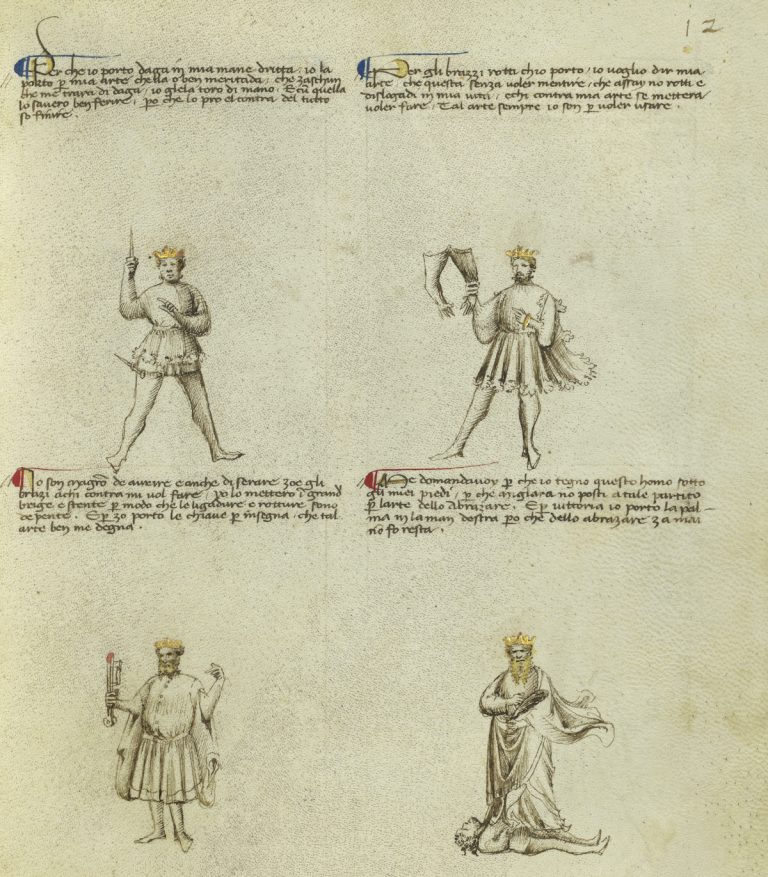 12
Per che io porto daga in mia mane dritta, io la
porto p mia arte chella o ben meritada, che zaschun
che me trara di daga, io glela toro di mano. E cu quella
lo savero ben ferire, po che lo pro el contra del tutto
so finire.
Per gli brazzi rotti chio porto, io voglio dir mia
arte, che questa senza voler mentire, che assay no rotti e
dislogadi in mia vita, e chi contra mia arte se mettera
voler fare, Tal arte sempre io son p voler usare.
Io son magro de avrire e anche di serare zoe gli
brazi a chi contra mi vol fare, po lo mettero i grand
brige e stente p modo che le ligadure e rotture sono
depente. E p zo porto le chiave p insegna, che tal
arte ben me degna.
Me domandavoy p che io tegno questo homo sotto
gli miei piedi, p che migliara no posti a tale partito
p larte dello abrazare. E p vittoria io porto la pal-
ma in la man destra p o che dello abrazare za mai
no fo resta.